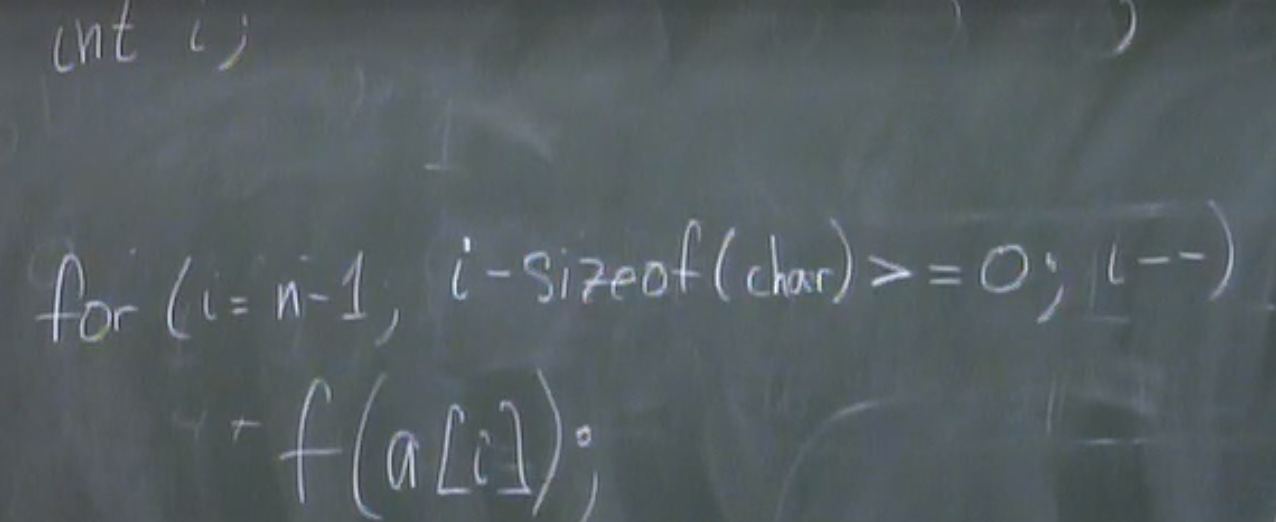 int i;
for (i = n-1, i - sizeof(char) >= 0; i--)
f(a[i]);